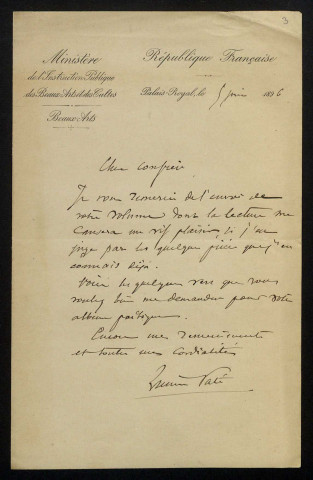 3
Ministère
de l'Instruction Publique
des Beaux Arts et des Cultes
Beaux Arts
République Française
Palais Royal, le 5 juin 1896
Cher confrère
Je vous remercie de l'envoi de
votre volume dont la lecture me
causera un vif plaisir si j'en
juge par les quelques pièces que j'en
connais déjà.
Voici les quelques vers que vous
voulez bien me demander pour votre
album poétique.
Encore mes remerciements
et toutes mes cordialités
Lucien Paté